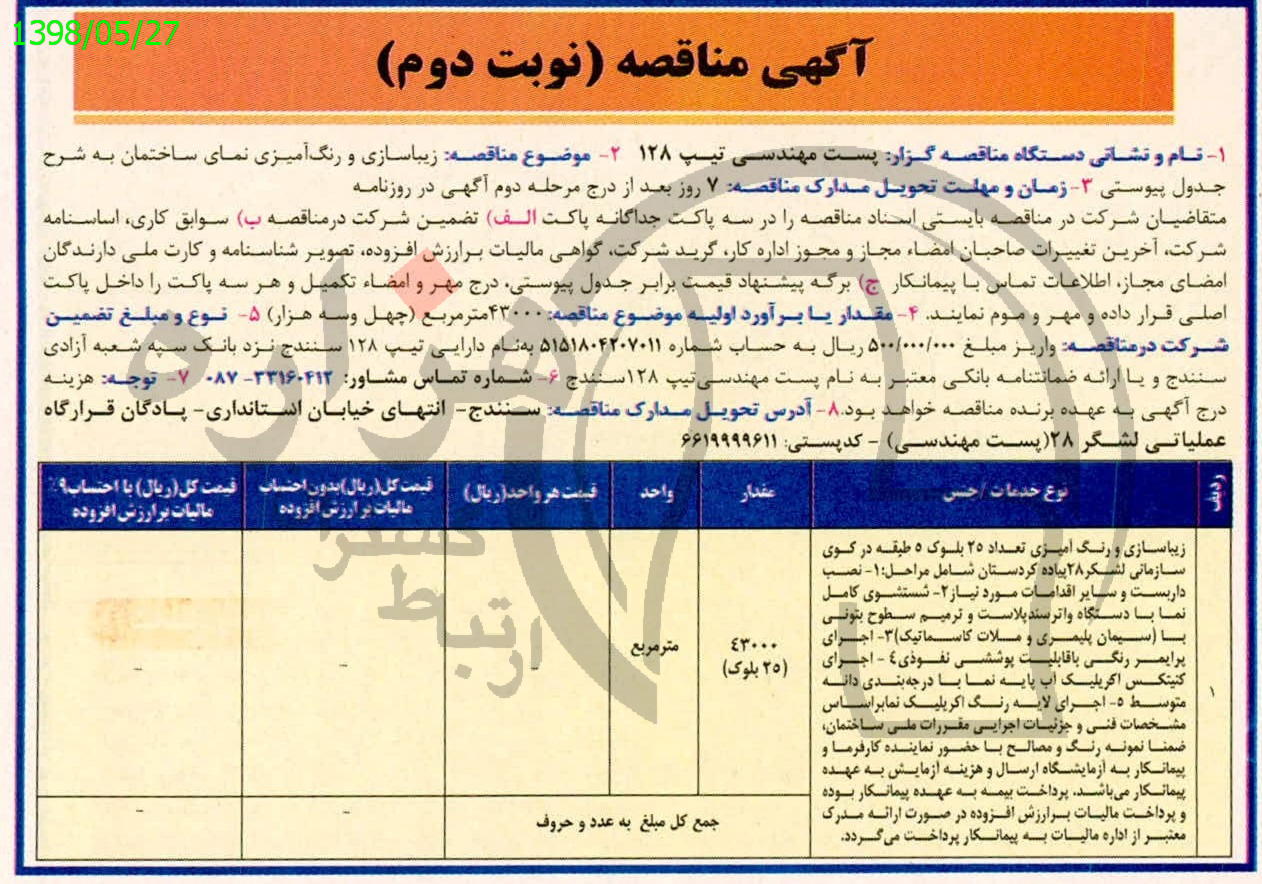 1398/05/27
آگهی مناقصه (نوبت دوم)
۱- نام و نشانی دستگاه مناقصه گزار: پست مهندسی تیپ ۱۲۸ ۲- موضوع مناقصه: زیباسازی و رنگ‌آمیزی نمای ساختمان به شرح
جدول پیوستی ۳- زمان و مهلت تحویل مدارک مناقصه: ۷ روز بعد از درج مرحله دوم آگهی در روزنامه
متقاضیان شرکت در مناقصه بایستی اسناد مناقصه را در سه پاکت جداگانه پاکت الف) تضمین شرکت درمناقصه ب) سوابق کاری، اساسنامه
شرکت، آخرین تغییرات صاحبان امضاء مجاز و مجوز اداره کار، گرید شرکت، گواهی مالیات برارزش افزوده، تصویر شناسنامه و کارت ملی دارندگان
امضای مجاز، اطلاعات تماس با پیمانکار ج) برگه پیشنهاد قیمت برابر جدول پیوستی، درج مهر و امضاء تکمیل و هر سه پاکت را داخل پاکت
اصلی قرار داده و مهر و موم نمایند. ۴- مقدار یا برآورد اولیه موضوع مناقصه: ۴۳۰۰۰مترمربع (چهل وسه هزار) ۵- نوع و مبلغ تضمین
شرکت درمناقصه: واریز مبلغ ۵۰۰/۰۰۰/۰۰۰ ریال به حساب شماره ۵۱۵۱۸۰۴۲۰۷۰۱۱ به‌نام دارایی تیپ ۱۲۸ سنندج نزد بانک سپه شعبه آزادی
سنندج و یا ارائه ضمانتنامه بانکی معتبر به نام پست مهندسی‌تیپ ۱۲۸سنندج ۶- شماره تماس مشاور: ۳۳۱۶۰۴۱۲- ۰۸۷ ۷- توجه: هزینه
درج آگهی به عهده برنده مناقصه خواهد بود.۸- آدرس تحویل مدارک مناقصه: سنندج- انتهای خیابان استانداری- پادگان قرارگاه
عملیاتی لشگر ۲۸(پست مهندسی) - کدپستی: ۶۶۱۹۹۹۹۶۱۱
ردیف نوع خدمات /جنس مقدار واحد قیمت هر واحد(ریال) قیمت کل(ریال)بدون احتساب مالیات بر ارزش افزوده قیمت کل(ریال) با احتساب۹٪ مالیات برارزش افزوده
۱
زیباسازی و رنگ آمیزی تعداد ۲۵ بلوک ۵ طبقه در کوی
سازمانی لشکر۲۸پیاده کردستان شامل مراحل:۱- نصب
داربست و سایر اقدامات مورد نیاز۲- شستشوی کامل
نما با دستگاه واترسندپلاست و ترمیم سطوح بتونی
با (سیمان پلیمری و ملات کاسماتیک)۳- اجرای
پرایمر رنگی باقابلیت پوششی نفوذی۴ - اجرای
کنیتکس اکریلیک آب پایه نما با درجه‌بندی دانه
متوسط ۵- اجرای لایه رنگ اکریلیک نمابراساس
مشخصات فنی و جزئیات اجرایی مقررات ملی ساختمان،
ضمنا نمونه رنگ و مصالح با حضور نماینده کارفرما و
پیمانکار به آزمایشگاه ارسال و هزینه آزمایش به عهده
پیمانکار می‌باشد. پرداخت بیمه به عهده پیمانکار بوده
و پرداخت مالیات برارزش افزوده در صورت ارائه مدرک
معتبر از اداره مالیات به پیمانکار پرداخت می‌گردد.
۴۳۰۰۰
(۲۵ بلوک)
مترمربع
- - -
جمع کل مبلغ به عدد و حروف
- -
هزاره
ارتباط گستر